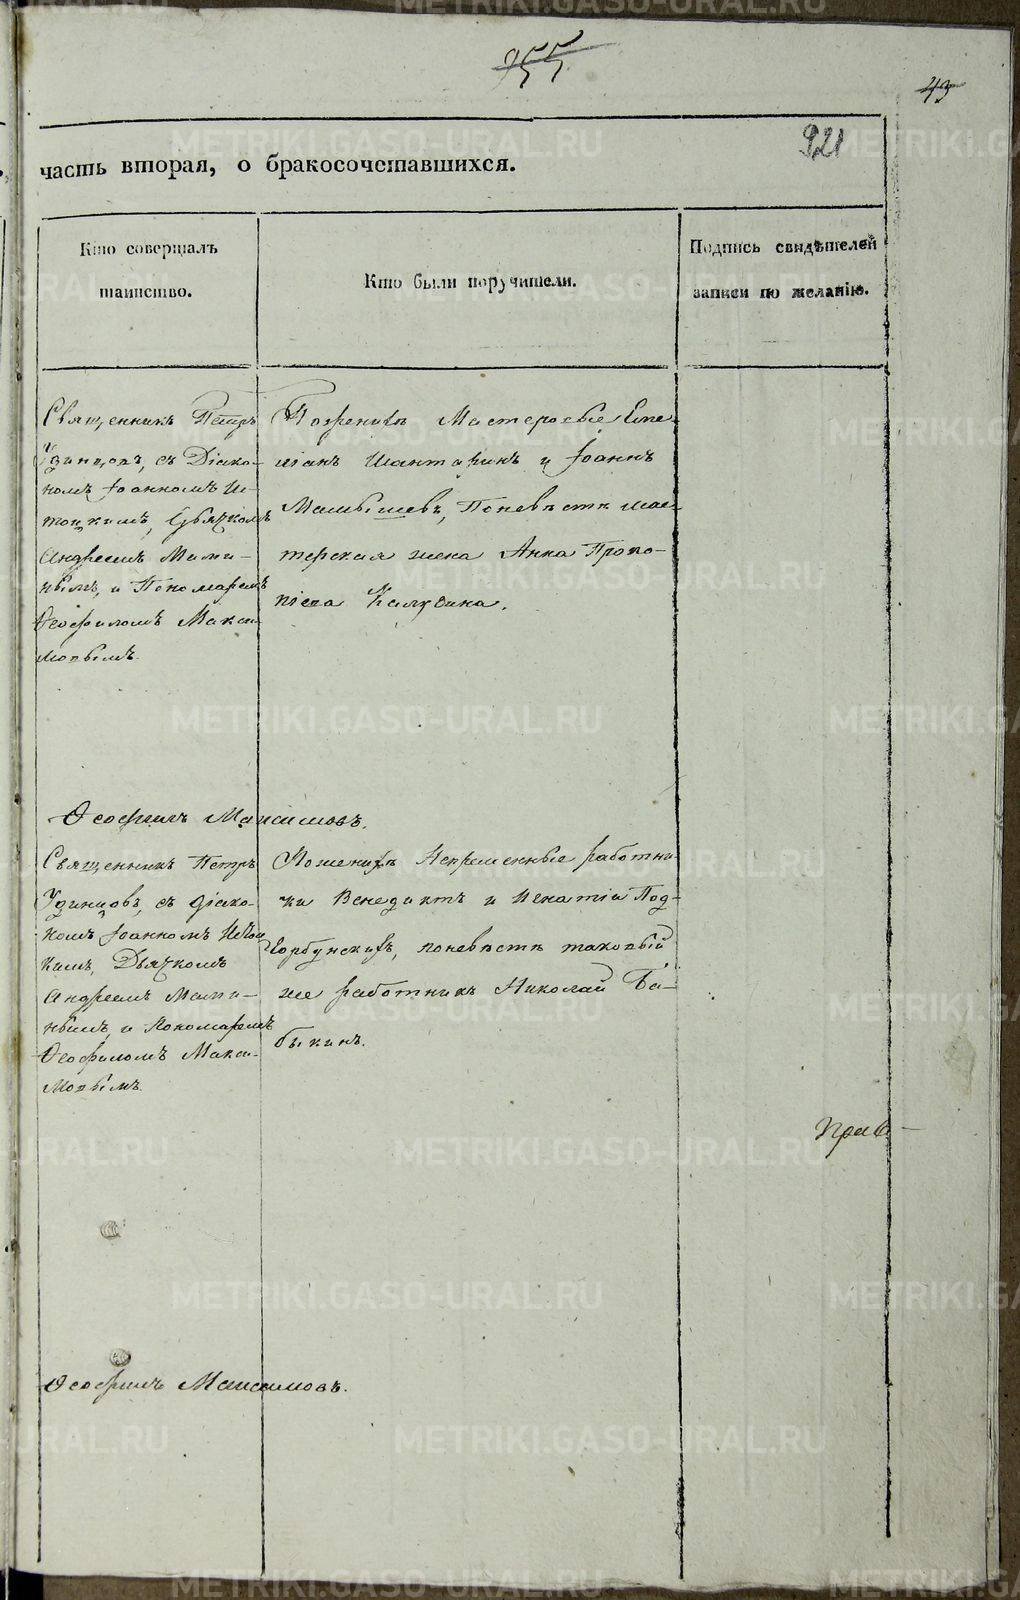 955
43
921
часть вторая, о бракосочетавшихся.
Кто совершалъ
таинство.
Кто были поручители.
Подпись свидѣтелей
записи по желанію.
Священникъ Петръ
Удинцовъ, съ Діако-
номъ Іоанномъ И-
тоцкимъ, Дьячкомъ
Андреемъ Мами-
нымъ, и Пономаремъ
Ѳеофиломъ Макси-
мовымъ.
Поженихѣ Мастеровые Еме-
ліанъ Шантаринъ и Іоаннъ
Мамышевъ, Поневѣстѣ мас-
терская жена Анна Проко-
піева Калугина.
Ѳеофилъ Максимовъ.
Священникъ Петръ
Удинцовъ, съ діако-
номъ Іоанномъ
кимъ, Дьячкомъ
Андреемъ Мами-
нымъ, и Пономаремъ
Ѳеофиломъ Макси-
мовымъ.
Поженихѣ Непременные работни-
ки Венедиктъ и Игнатій Под-
горбунскихъ, поневѣстѣ таковый
же работникъ Николай Ба-
быкинъ.
Ѳеофилъ Максимовъ.
METRIKI.GASO-URAL.RU